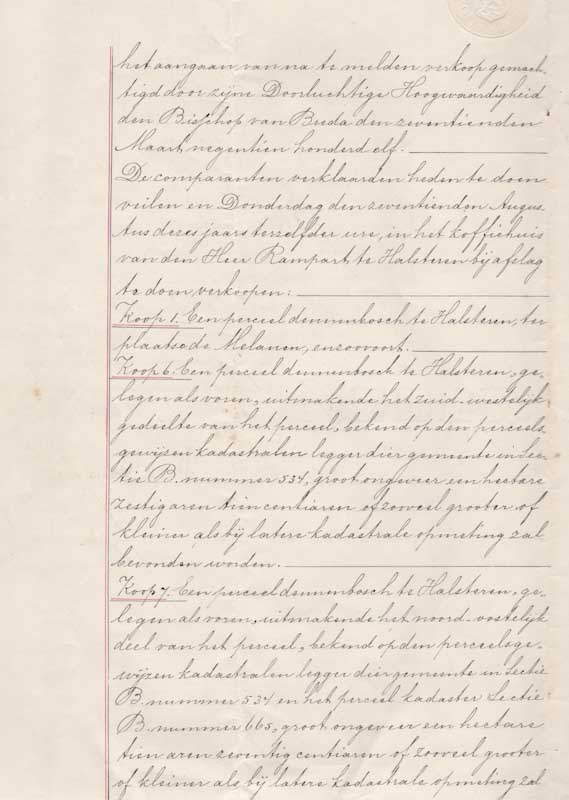 het aangaan van na te melden verkoop gemach-
tigd door zijne Doorluchtige Hoogwaardigheid
den Bisschop van Breda den zeventienden
Maart negentien honderd elf.
De comparanten verklaarden heden te doen
veilen en Donderdag den zeventienden Augus-
tus dezes jaars terzelfder ure, in het koffiehuis
van den Heer Rampart te Halsteren bij afslag
te doen verkoopen:
Koop 1. Een perceel dennenbosch te Halsteren, ter
plaatse de Melanen, enzoovoort.
Koop 6. Een perceel dennenbosch te Halsteren, ge-
legen als voren, uitmakende het zuid-westelijk
gedeelte van het perceel, bekend op den perceels-
gewijzen kadastralen legger dier gemeente in Sec-
tie B. nummer 534, groot ongeveer een hectare
zestig aren tien centiaren of zooveel grooter of
kleiner als bij latere kadastrale opmeting zal
bevonden worden.
Koop 7. Een perceel dennenbosch te Halsteren, ge-
legen als voren, uitmakende het noord-oostelijk
deel van het perceel, bekend op den perceelsge-
wijzen kadastralen legger dier gemeente in Sectie
B. nummer 534 en het perceel kadaster Sectie
B. nummer 665, groot ongeveer een hectare
tien aren zeventig centiaren of zooveel grooter
of kleiner als bij latere kadastrale opmeting zal